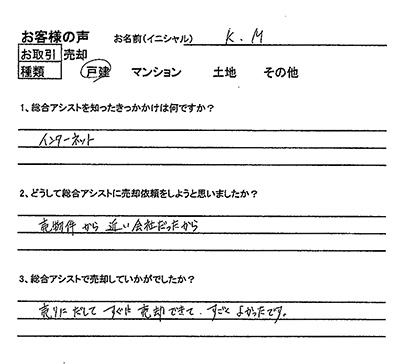 お客様の声 お名前(イニシャル) K.M
お取引 売却
種類 戸建 マンション 土地 その他
1、総合アシストを知ったきっかかけは何ですか?
インターネット
2、どうして総合アシストに売却依頼をしようと思いましたか?
売物件から近い会社だったから
3、総合アシストで売却していかがでしたか?
売りにだしてすぐに売却できて、すごくよかったです。